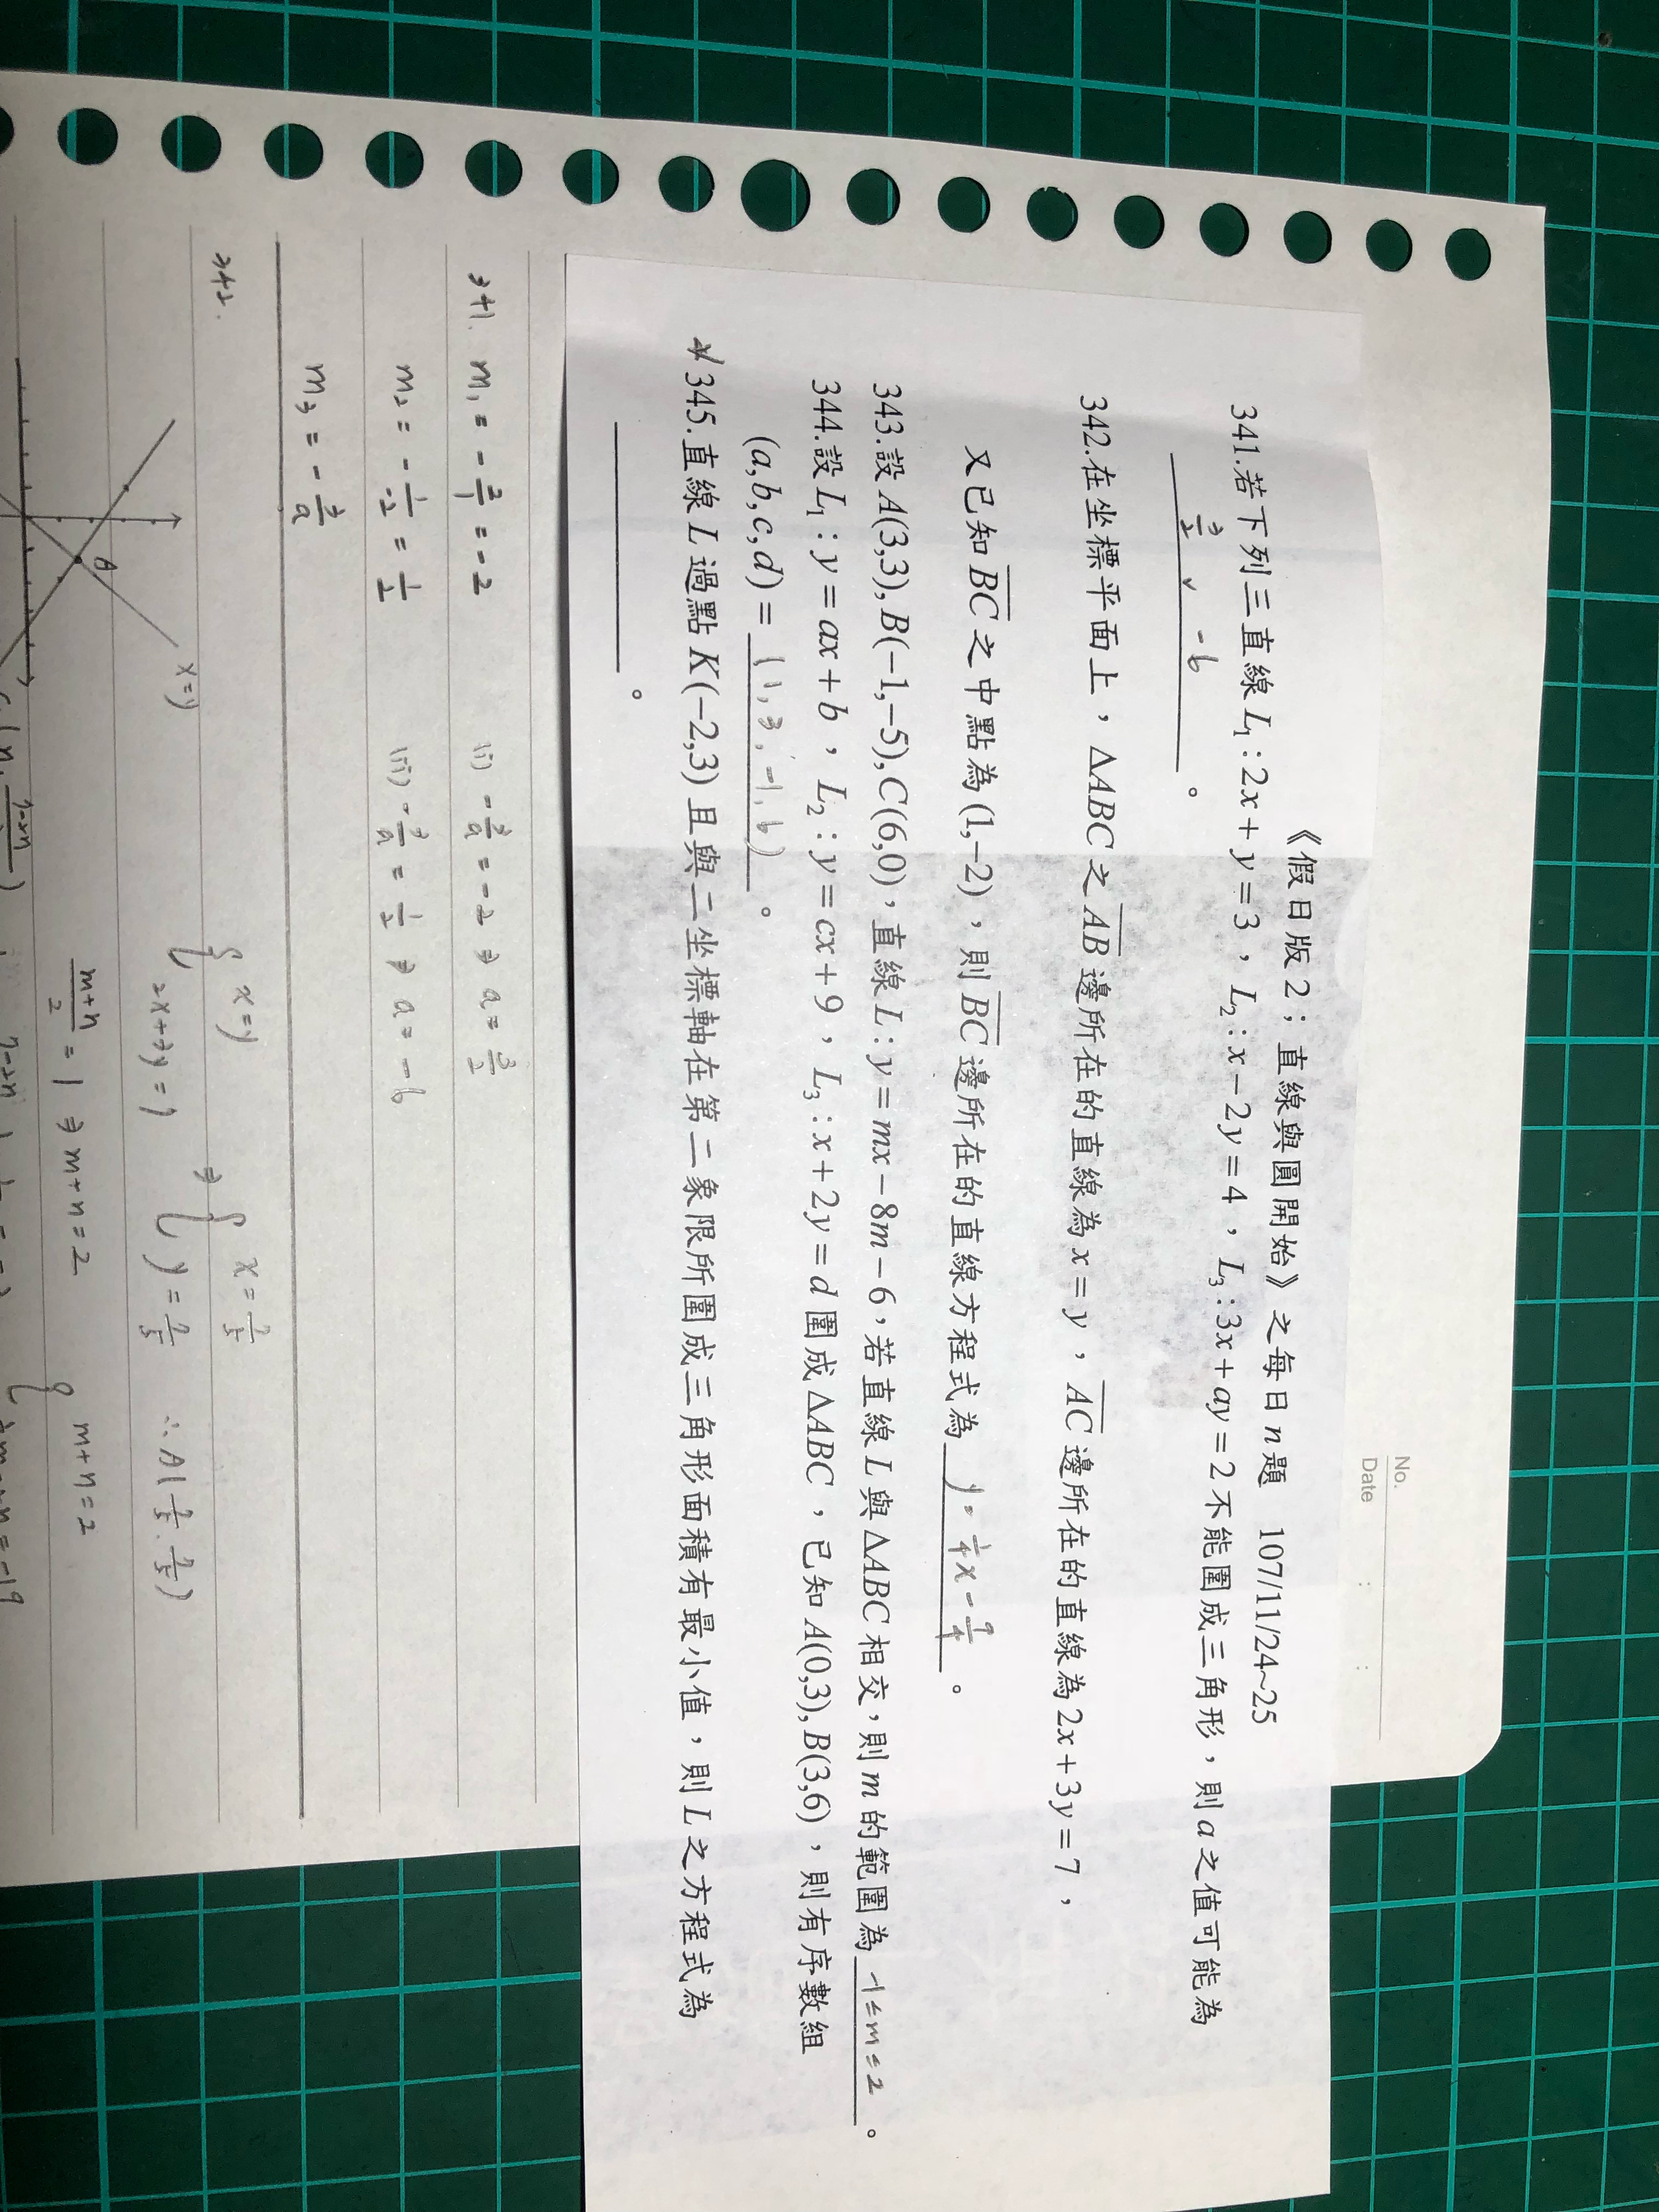 No.
Date : :
《假日版 2；直線與圓開始》之每日 n 題 107/11/24~25
341.若下列三直線 L₁:2x+y=3，L₂:x−2y=4，L₃:3x+ay=2 不能圍成三角形，則 a 之值可能為
3/2、-6。
342.在坐標平面上，ΔABC 之 AB 邊所在的直線為 x=y，AC 邊所在的直線為 2x+3y=7，
又已知 BC 之中點為 (1,−2)，則 BC 邊所在的直線方程式為 y=1/4x-9/4。
343.設 A(3,3),B(−1,−5),C(6,0)，直線 L:y=mx−8m−6，若直線 L 與 ΔABC 相交，則 m 的範圍為 。
344.設 L₁:y=ax+b，L₂:y=cx+9，L₃:x+2y=d 圍成 ΔABC，已知 A(0,3),B(3,6)，則有序數組
(a,b,c,d)=(1,3,-1,6)。
345.直線 L 過點 K(−2,3) 且與二坐標軸在第二象限所圍成三角形面積有最小值，則 L 之方程式為
。
341. m₁=-2/1=-2 (i) -3/a=-2 ⇒ a=3/2
m₂=-1/-2=1/2 (ii) -3/a=1/2 ⇒ a=-6
m₃=-3/a
342. x=y { x=y ⇒ { x=7/5
2x+3y=7 y=7/5 ∴A(7/5,7/5)
A
m+n/2=1 ⇒ m+n=2 { m+n=2